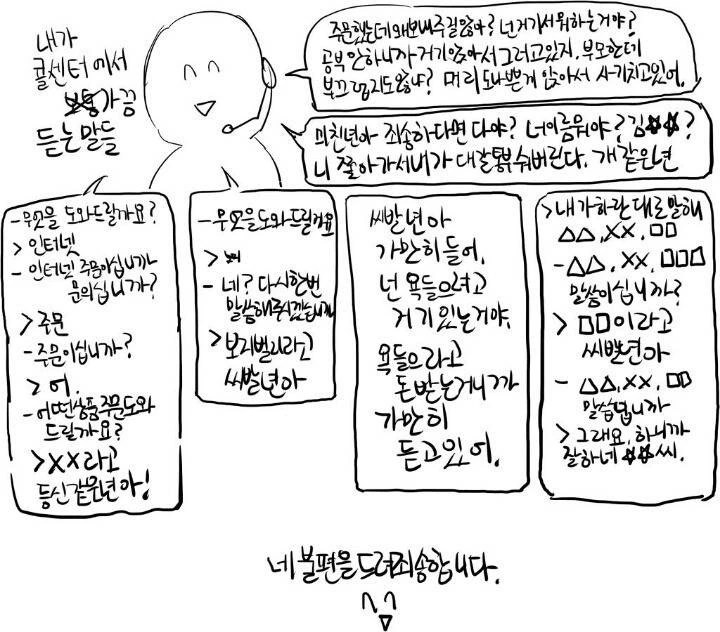 내가
콜센터에서
보통 가끔
듣는 말들
주문했는데 왜 보내주질않아? 넌 거기서 뭐하는거야?
공부안하니까 거기앉아서 그러고있지. 부모한테
부끄럽지도않냐? 머리도나쁜게 앉아서 사기치고있어.
미친년아 죄송하다면 다야? 너이름뭐야? 김☆☆?
니 찾아가서 내가 대갈통부숴버린다. 개같은년
-무엇을 도와드릴까요?
>인터넷
-인터넷 주문이십니까
문의십니까?
>주문
-주문이십니까?
>어.
-어떤상품 주문도와
드릴까요?
>XX라고
등신같은년아!
-무엇을도와드릴까요
>
-네? 다시한번
말씀해주시겠습니까
>보지벌리라고
씨발년아
씨발년아
가만히들어.
넌 욕들으려고
거기있는거야.
욕들으라고
돈받는거니까
가만히
듣고있어.
>내가하란대로말해
△△,XX,□□
-△△,XX,□□□
말씀이십니까?
>□□이라고
씨발년아
-△△,XX,□□
말씀입니까
>그래요, 하니까
잘하네 ☆☆씨.
네 불편을드려죄송합니다.